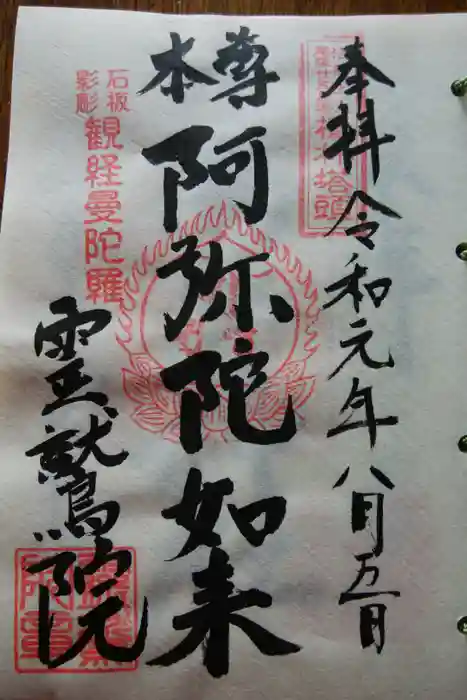 奉拝 令和元年八月五日
本尊
阿弥陀如来
石板
影彫
観経曼陀羅
霊鷲院